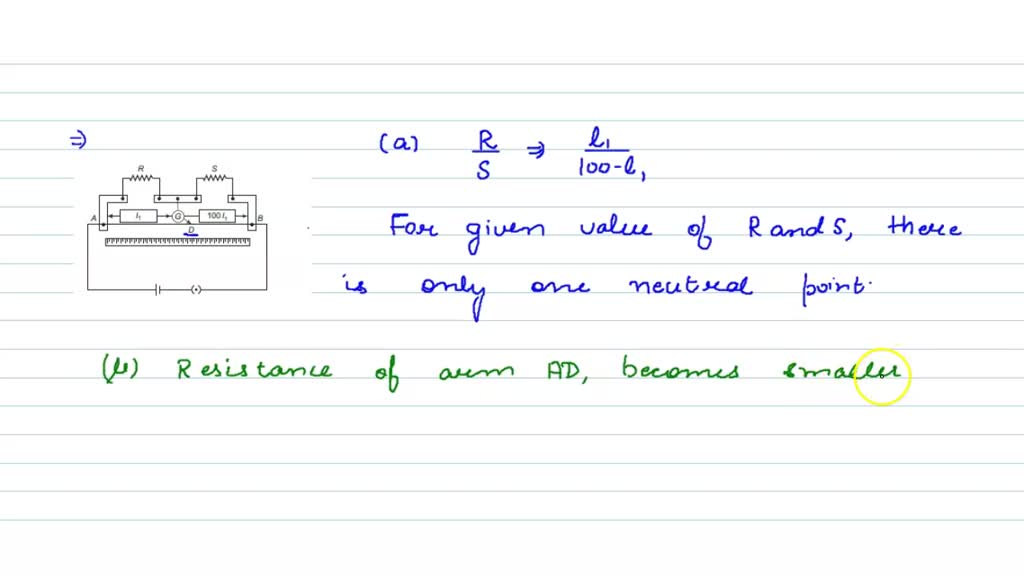 ⇒
(a) R/S ⇒ l₁/100-l₁
R S
A l₁ G 100 l₁ B
D
For given value of R and S, there
is only one neutral point.
(b) Resistance of arm AD, becomes smaller